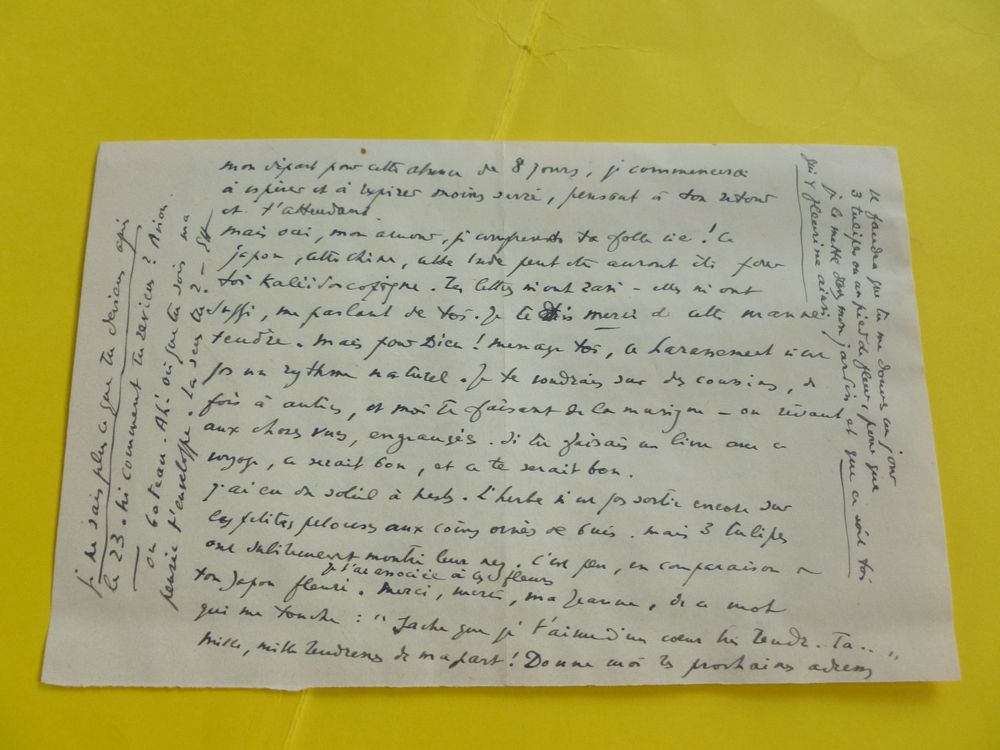 mon départ pour cette absence de 8 jours, je commencerai
à espérer et à respirer moins serré, pensant à ton retour
et t'attendant
mais oui, mon amour, je comprends ta folle vie ! Ce
japon, cette chine, cette Inde peut être auront été pour
toi Kaléidoscopique. Tes lettres m'ont ravi – elles m'ont
suffi, me parlant de toi. Je te dis merci de cette manne
tendre. mais pour Dieu ! ménage toi, ce harassement n'est
pas un rythme naturel. Je te voudrais sur des cousins, de
fois à autres, et moi te faisant de la musique – ou rêvant
aux choses vues, engrangées. Si tu faisais un livre sur ce
voyage, ce serait bon, et ce te serait bon.
j'ai eu du soleil à L'herbe n'est pas sortie encore sur
les petites pelouses aux coins ornés de buis. mais 3 tulipes
ont subitement montré leur nez. C'est peu, en comparaison de
je t'ai associée à ces fleurs
ton Japon fleuri. Merci, merci, ma Jeanne, de ce mot
qui me touche : " Sache que je t'aime d'un cœur très tendre. Ta .. "
mille, mille tendresses de ma part ! Donne moi tes prochaines adresses
je ne sais plus ce que tu deviens après
le 23. ni comment tu reviens ? Avion
ou bateau. Ah ! où que tu sois ma
pensée t'enveloppe. La sens tu ? –
Il faudra que tu me donnes un jour
3 tulipes ou un pied de fleur, pour que
je le mette dans mon jardin, et que ce soit toi
qui y fleurisse ainsi